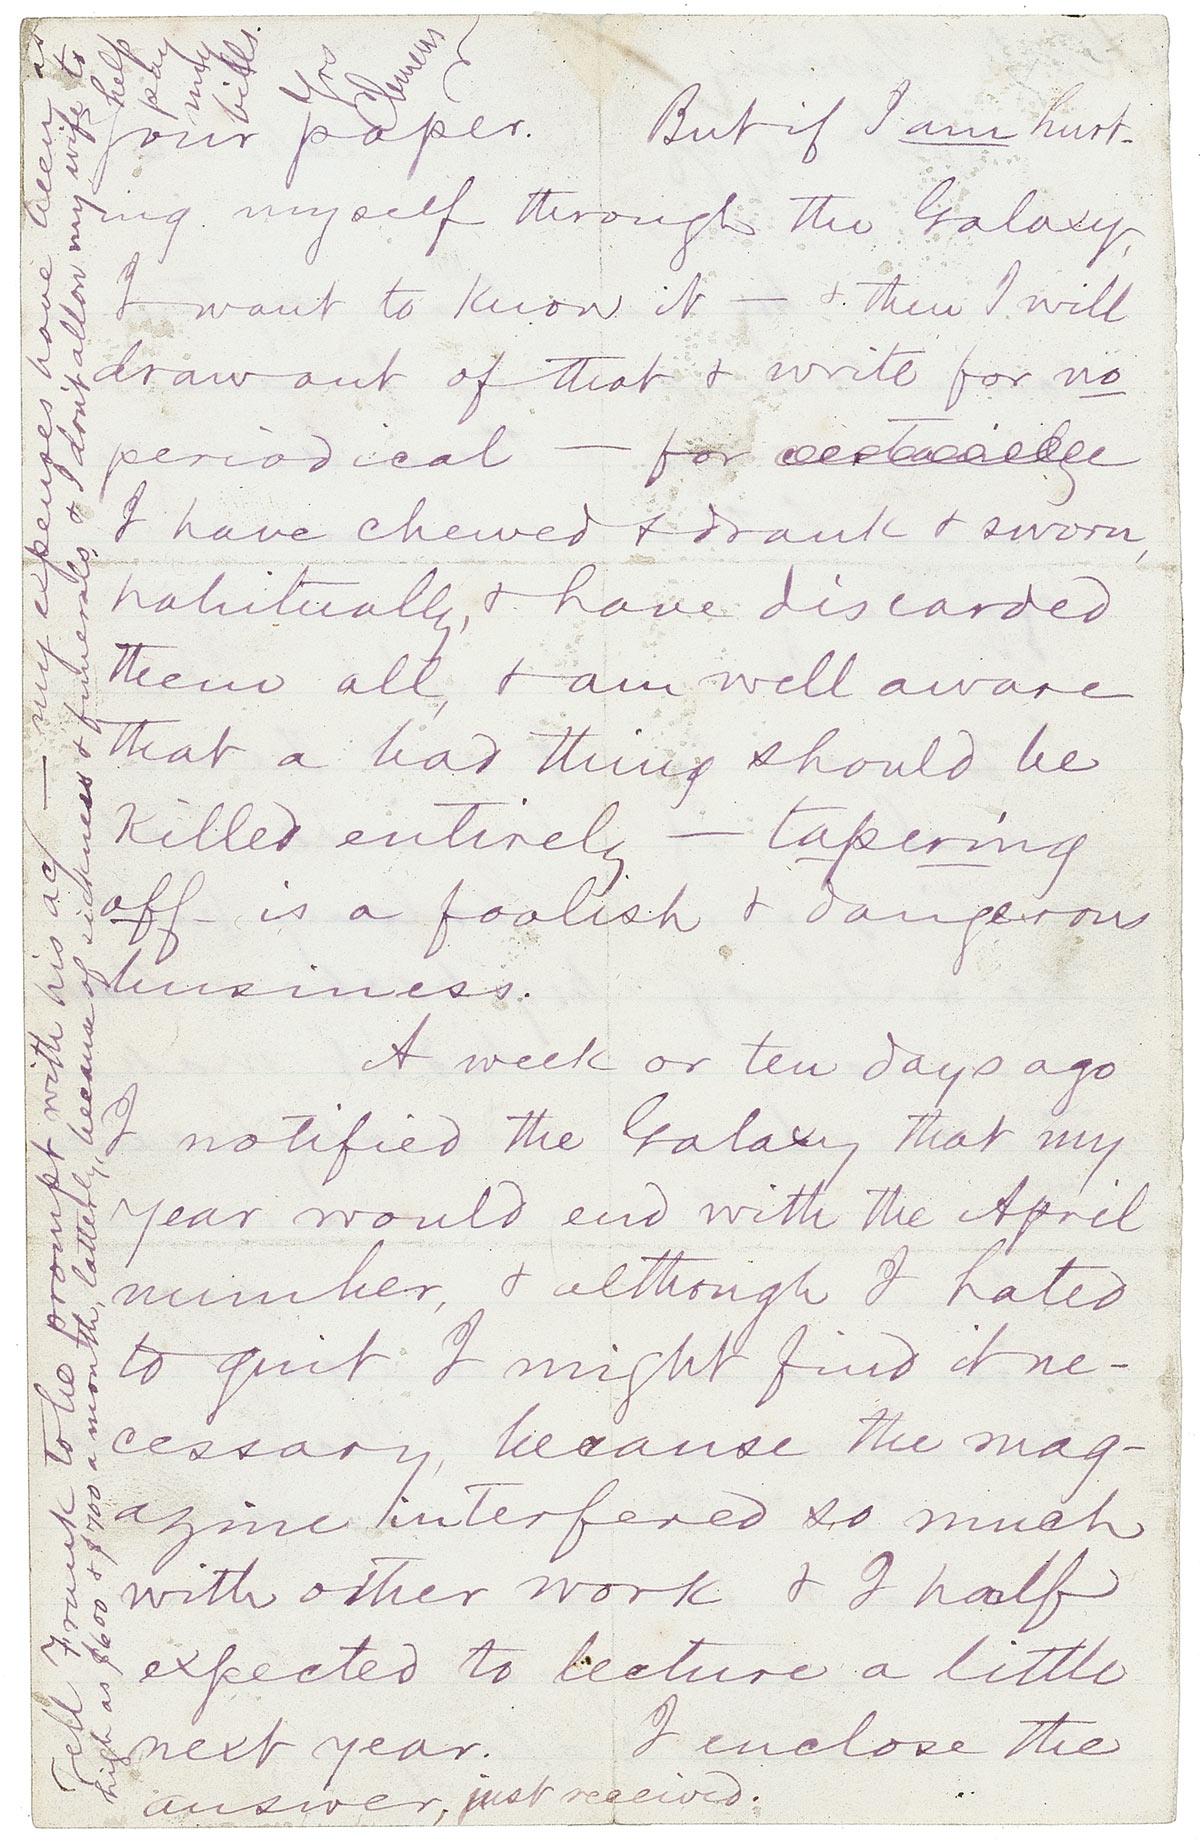 your paper. But if I am hurt-
ing myself through the Galaxy,
I want to know it — & then I will
draw out of that & write for no
periodical — for certainly
I have chewed & drank & sworn,
habitually, & have discarded
them all, & am well aware
that a bad thing should be
killed entirely — tapering
off is a foolish & dangerous
business.
A week or ten days ago
I notified the Galaxy that my
year would end with the April
number, & although I hated
to quit I might find it ne-
cessary, because the mag-
azine interfered so much
with other work & I half
expected to lecture a little
next year. I enclose the
answer, just received.
Tell Frank to be prompt with his ac/ — my expenses have been as
high as $600 & $700 a month, latterly, because of sickness & funerals, & I don't allow my wife to
help
pay
my
bills.
Yrs
Clemens